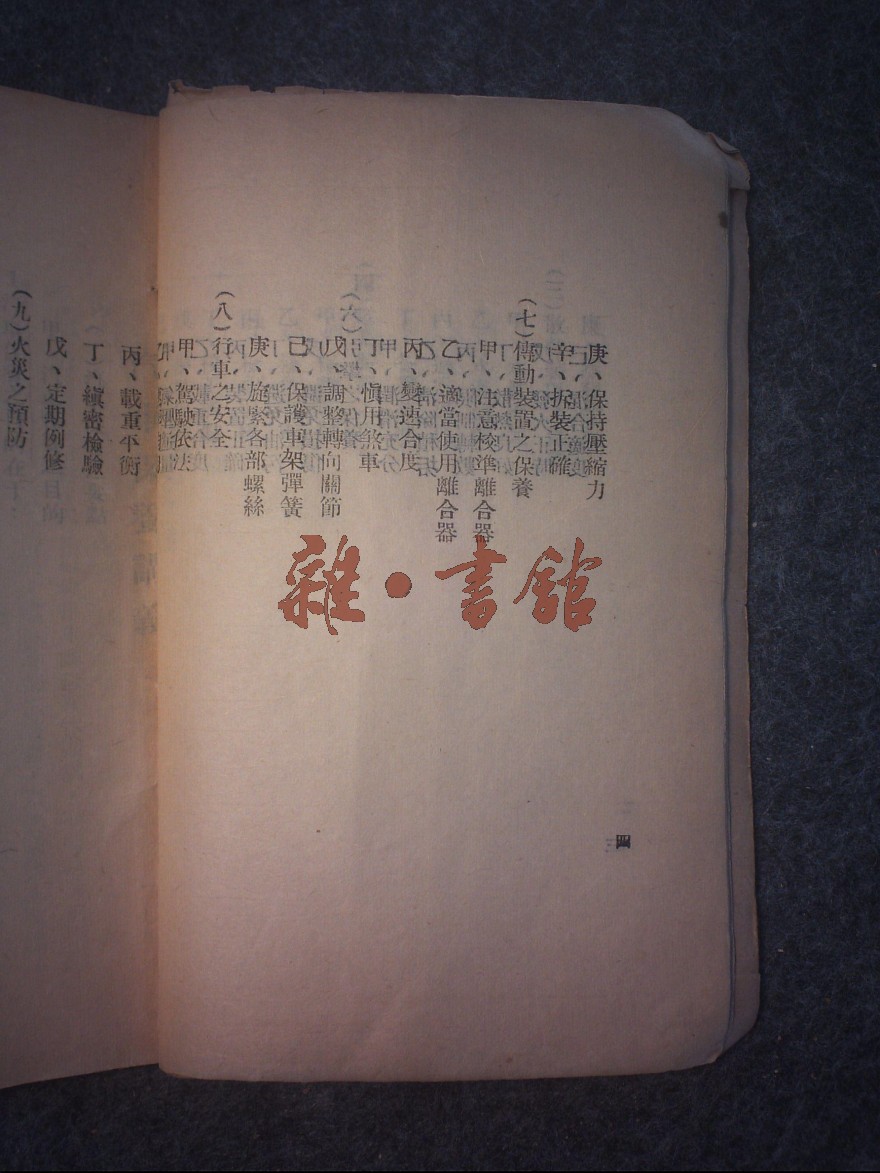 庚、保持壓縮力
辛、拆裝正確
(七)傳動裝置之保養
甲、注意校準離合器
乙、適當使用離合器
丙、變速合度
丁、愼用煞車
戊、調整轉向關節
己、保護車架彈簧
庚、旋緊各部螺絲
(八)行車之安全
甲、駕駛依法
丙、載重平衡
丁、縝密檢驗
戊、定期例修
(九)火災之預防
四
雜·書館